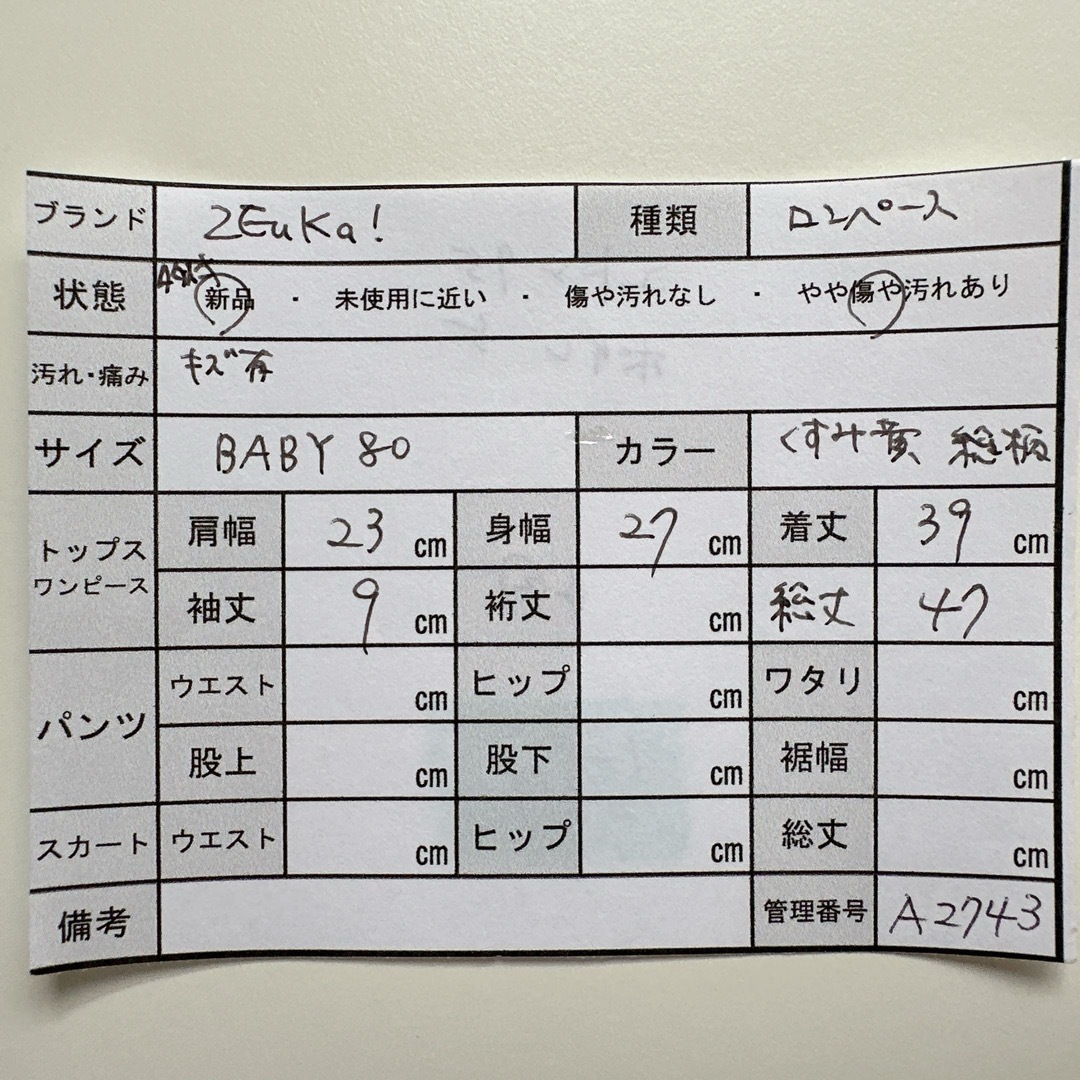 ブランド ZEuKa! 種類 ロンパース
状態 タグ付き 新品 ・ 未使用に近い ・ 傷や汚れなし ・ やや傷や汚れあり
汚れ・痛み キズ有
サイズ BABY 80 カラー くすみ黄 総柄
トップス ワンピース 肩幅 23 cm 身幅 27 cm 着丈 39 cm
袖丈 9 cm 裄丈 cm 総丈 47
パンツ ウエスト cm ヒップ cm ワタリ cm
股上 cm 股下 cm 裾幅 cm
スカート ウエスト cm ヒップ cm 総丈 cm
備考 管理番号 A2743